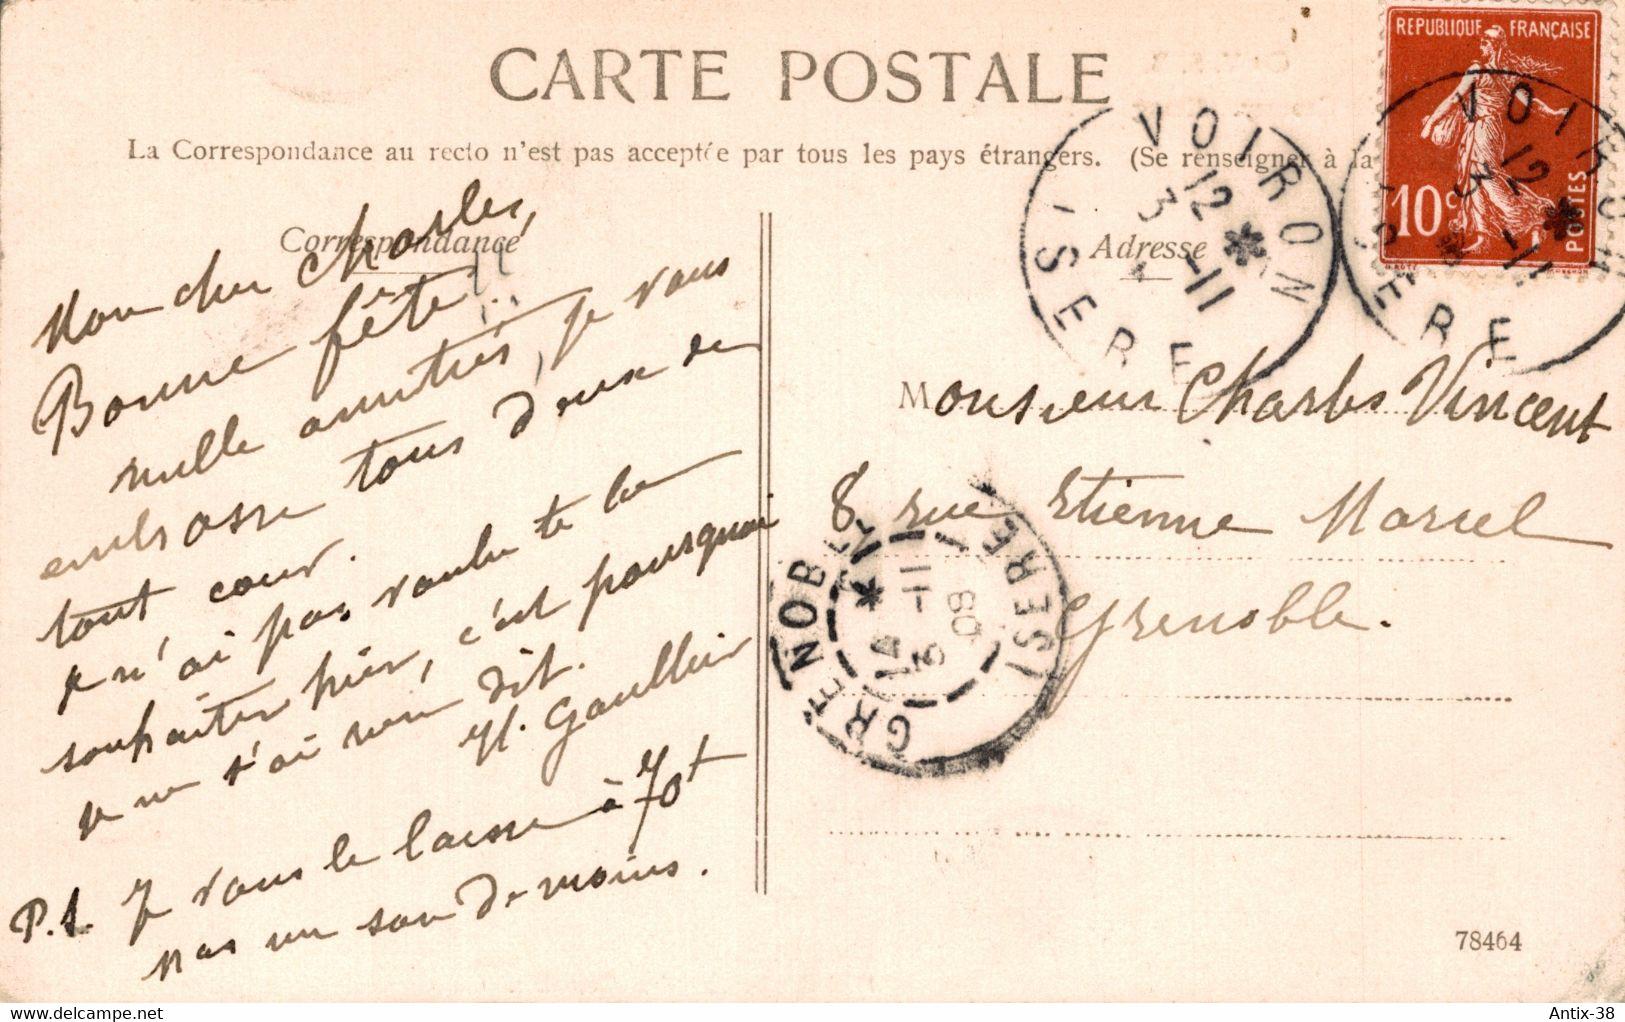 CARTE POSTALE
La Correspondance au recto n'est pas acceptée par tous les pays étrangers. (Se renseigner à la
Correspondance
Mon cher Charles,
Bonne fête!!
mille amitiés, je vous
embrasse tous deux de
tout cœur.
Je n'ai pas voulu te la
souhaiter hier, c'est pourquoi
je ne t'ai rien dit.
Gaullier
P.S. Je vous le laisse à 70
pas un sou de moins.
Adresse
Monsieur Charles Vincent
8 rue Etienne Marcel
Grenoble.
REPUBLIQUE FRANÇAISE
10c
POSTES
VOIRON
12
3 -11
ISERE
VOIRON
12
3 -11
ISERE
GRENOBLE
14
3 -11
08
ISERE
78464
www.delcampe.net
Antix-38